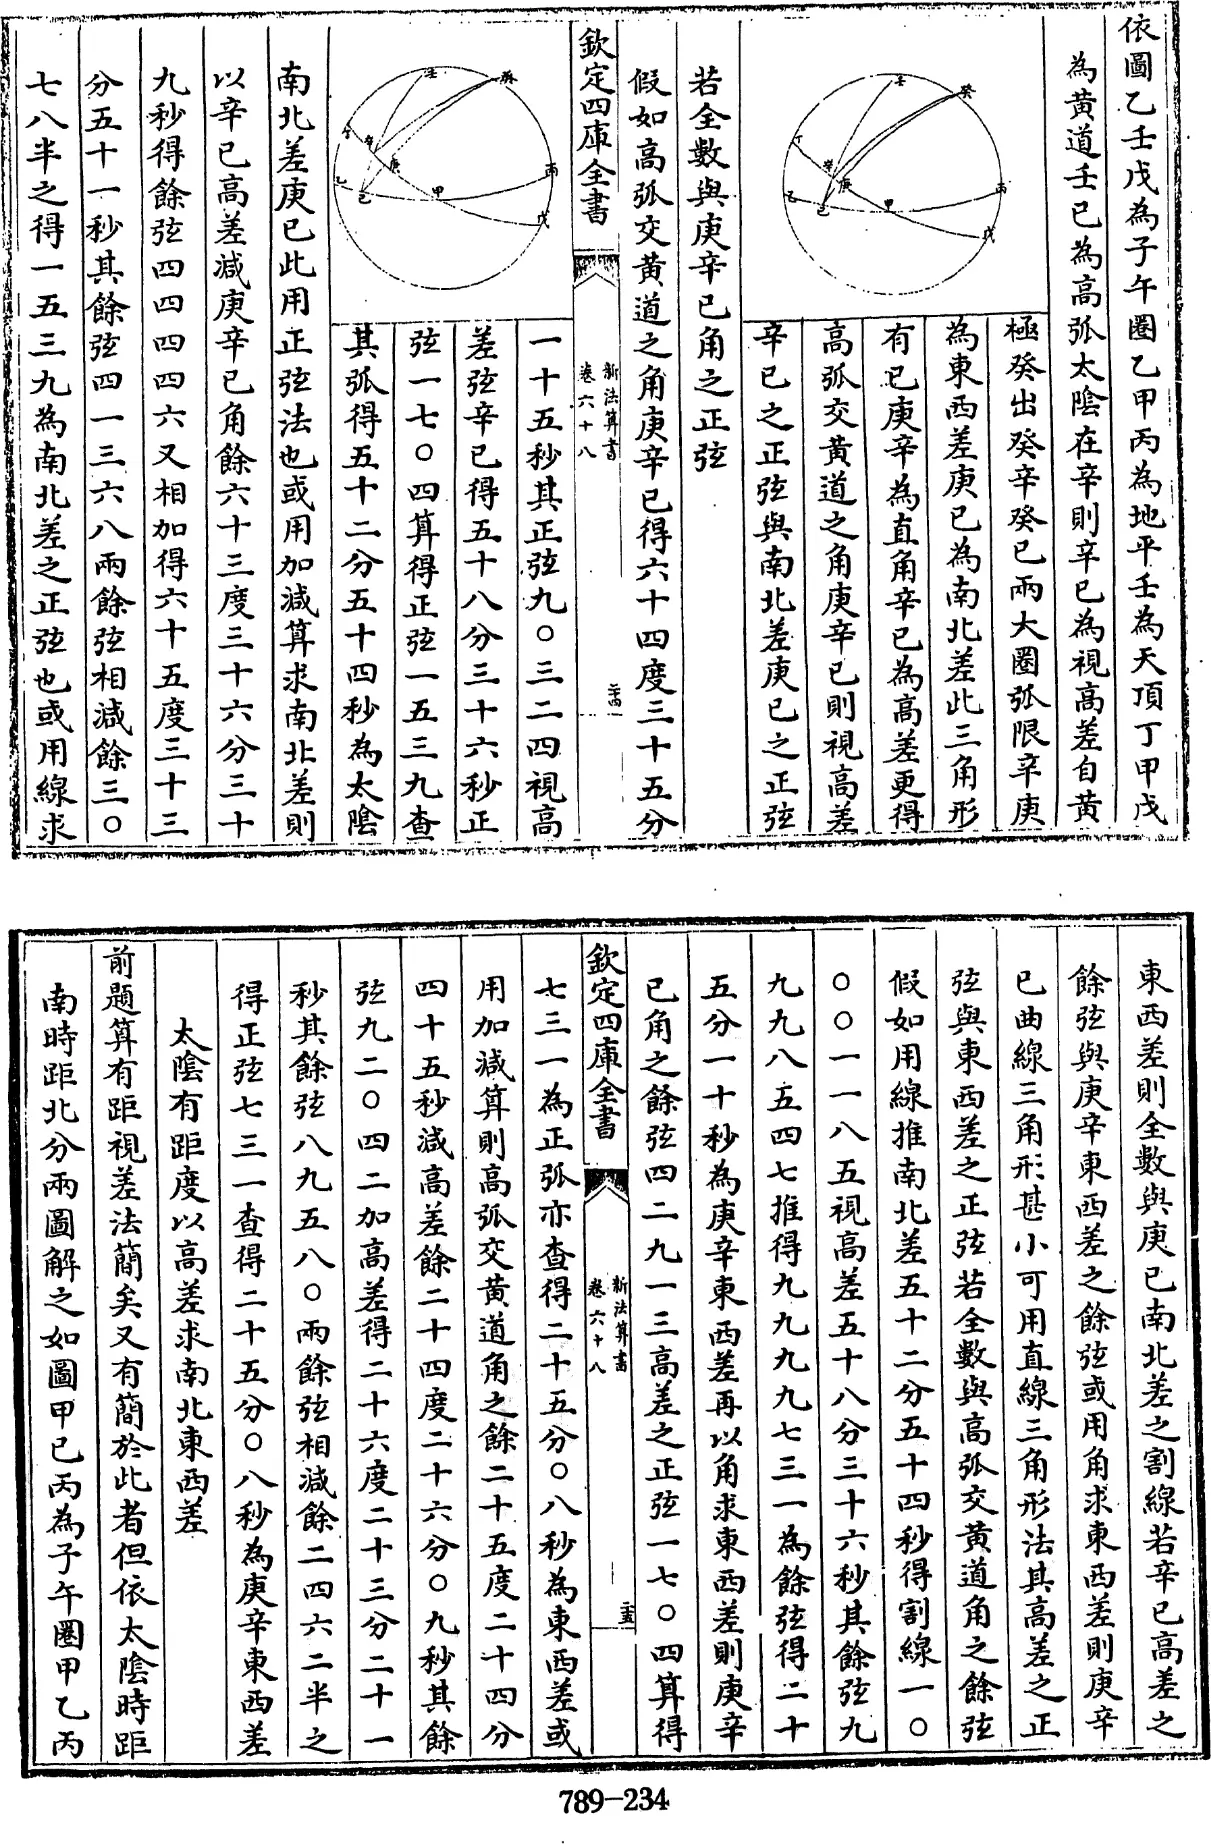 依圖乙壬戊為子午圈乙甲丙為地平壬為天頂丁甲戊
為黃道壬已為高弧太陰在辛則辛已為視高差自黃
極癸出癸辛癸已兩大圈弧限辛庚
為東西差庚已為南北差此三角形
有已庚辛為直角辛已為高差更得
高弧交黃道之角庚辛已則視高差
辛已之正弦與南北差庚已之正弦
若全數與庚辛已角之正弦
癸
壬
丁
辛
庚
丙
乙
已
甲
戊
假如高弧交黃道之角庚辛已得六十四度三十五分
欽定四庫全書
新法算書
卷六十八
二十四
一十五秒其正弦九〇三二四視高
差弦辛已得五十八分三十六秒正
弦一七〇四算得正弦一五三九查
其弧得五十二分五十四秒為太陰
癸
壬
丁
辛
庚
丙
乙
已
甲
戊
南北差庚已此用正弦法也或用加減算求南北差則
以辛已高差減庚辛已角餘六十三度三十六分三十
九秒得餘弦四四四四六又相加得六十五度三十三
分五十一秒其餘弦四一三六八兩餘弦相減餘三〇
七八半之得一五三九為南北差之正弦也或用線求
東西差則全數與庚已南北差之割線若辛已高差之
餘弦與庚辛東西差之餘弦或用角求東西差則庚辛
已曲線三角形甚小可用直線三角形法其高差之正
弦與東西差之正弦若全數與高弧交黃道角之餘弦
假如用線推南北差五十二分五十四秒得割線一〇
〇〇一一八五視高差五十八分三十六秒其餘弦九
九九八五四七推得九九九九七三一為餘弦得二十
五分一十秒為庚辛東西差再以角求東西差則庚辛
已角之餘弦四二九一三高差之正弦一七〇四算得
欽定四庫全書
新法算書
卷六十八
二十五
七三一為正弧亦查得二十五分〇八秒為東西差或
用加減算則高弧交黃道角之餘二十五度二十四分
四十五秒減高差餘二十四度二十六分〇九秒其餘
弦九二〇四二加高差得二十六度二十三分二十一
秒其餘弦八九五八〇兩餘弦相減餘二四六二半之
得正弦七三一查得二十五分〇八秒為庚辛東西差
太陰有距度以高差求南北東西差
前題算有距視差法簡矣又有簡於此者但依太陰時距
南時距北分兩圖解之如圖甲已丙為子午圈甲乙丙
789-234